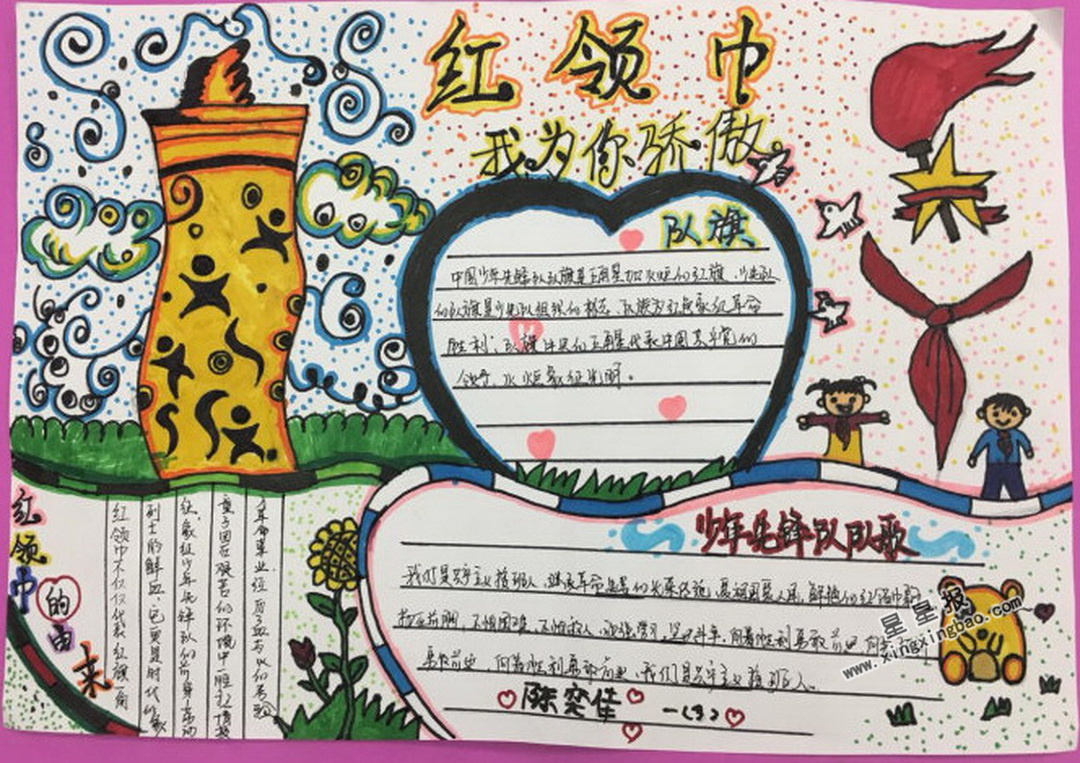 红领巾
我为你骄傲
队旗
中国少年先锋队队旗是五角星加火炬的红旗，少先队
的队旗是少先队组织的标志，队旗为红色象征革命
胜利；队旗中央的五角星代表中国共产党的
领导，火炬象征光明。
红领巾的由来
红领巾不仅仅代表红旗一角
烈士的鲜血，它更是时代
征，象征少年先锋队的前身劳动
童子团在艰苦的环境中
革命事业经历了血与火的考验
少年先锋队队歌
我们是共产主义接班人，继承革命先辈的光荣传统，爱祖国爱人民，鲜艳的红领巾飘
扬在前胸，不怕困难，不怕敌人，顽强学习，坚决斗争，向着胜利勇敢前进，向着
勇敢前进，向着胜利勇敢前进，我们是共产主义接班人。
陈奕佳 一(3)
星星报
www.xingxingbao.com